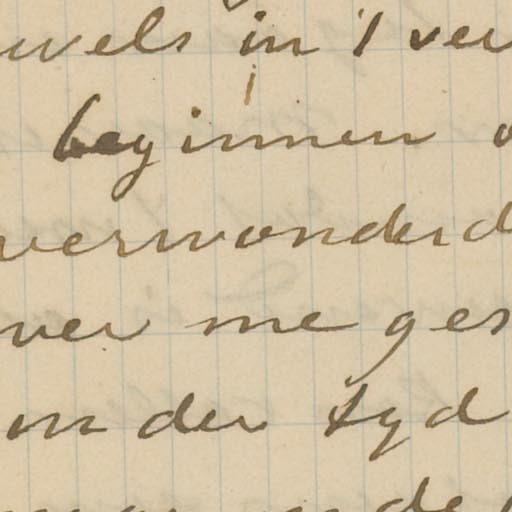 wels in 't ver
beginnen
verwonderd
ver me ges
der tyd